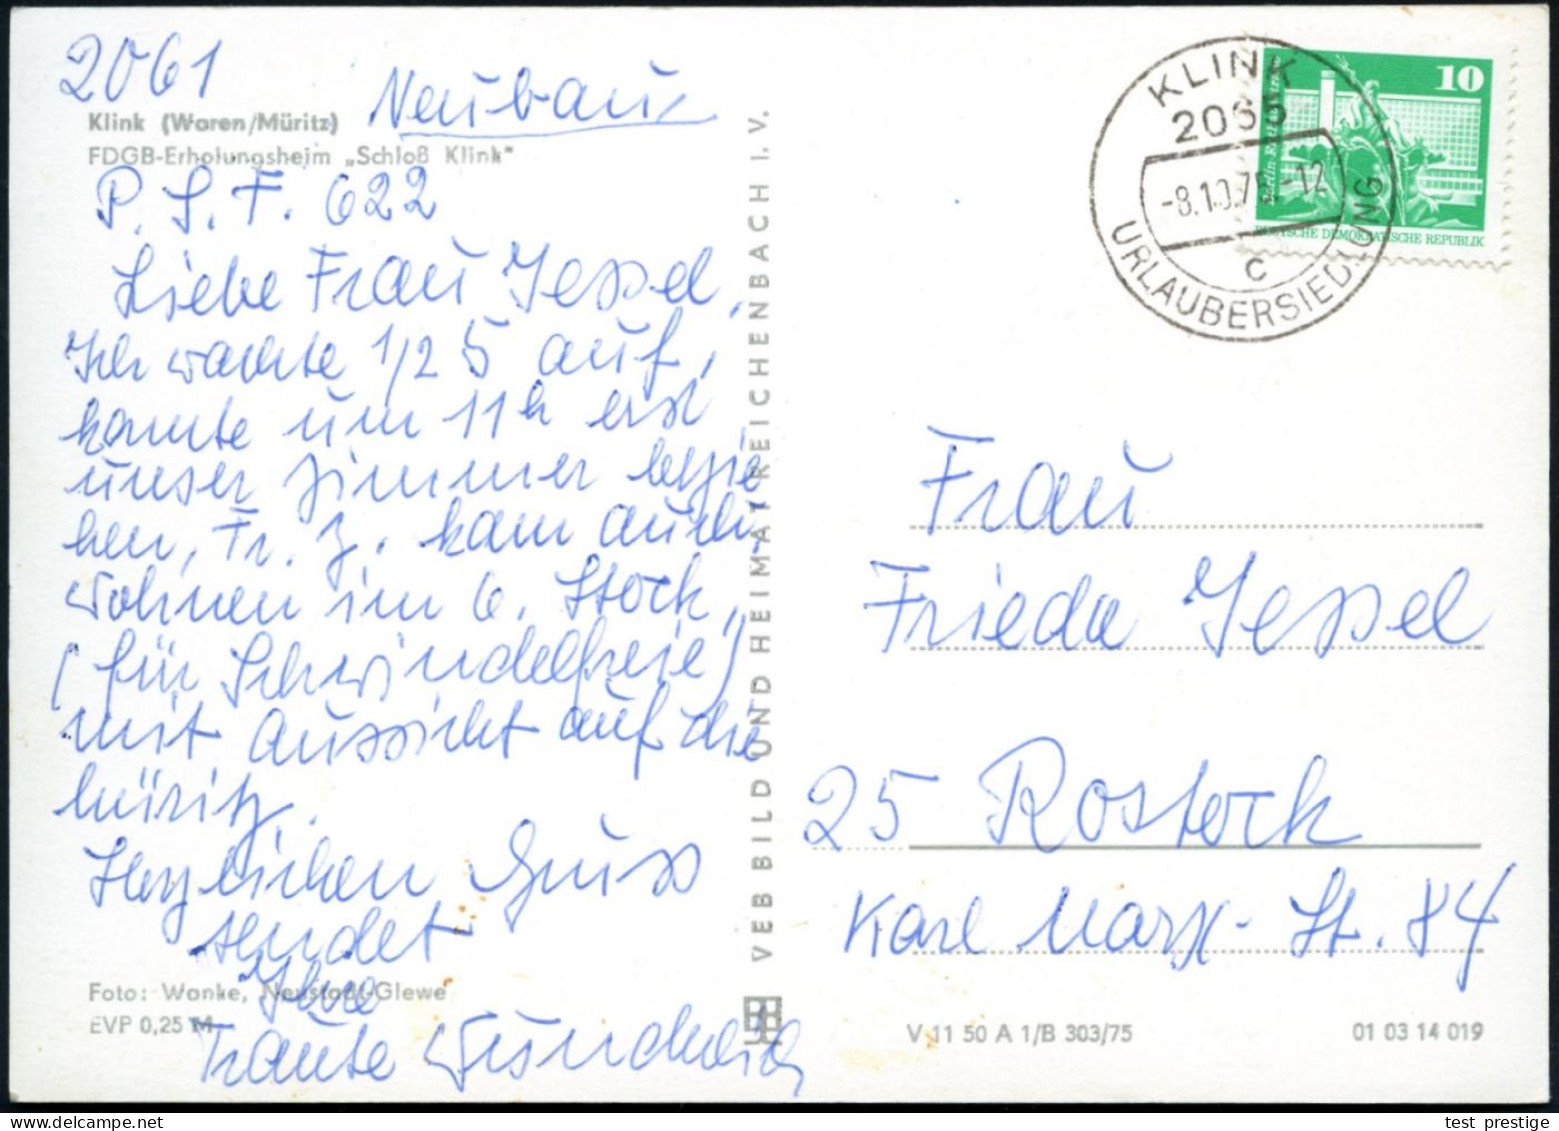 2061
Klink (Waren/Müritz)
Neubau
FDGB-Erholungsheim „Schloß Klink"
P. S. F. 622
Liebe Frau Jessel,
Ich wachte 1/2 5 auf,
konnte um 11h erst
unser Zimmer bezie
hen, Fr. Z. kam auch,
wohnen im 6. Stock,
(für Schwindelfreie)
mit Aussicht auf die
Müritz.
Herzlichen Gruss
sendet
Ihre
Traute
Foto: Wanke, Neustadt-Glewe
EVP 0,25 M
VEB BILD UND HEIMAT REICHENBACH I. V.
KLINK
2065
-8.10.75-12
c
URLAUBERSIEDLUNG
10
DEUTSCHE DEMOKRATISCHE REPUBLIK
Frau
Frieda Jessel
25 Rostock
Karl Marx-St. 84
V 11 50 A 1/B 303/75
01 03 14 019
test prestige